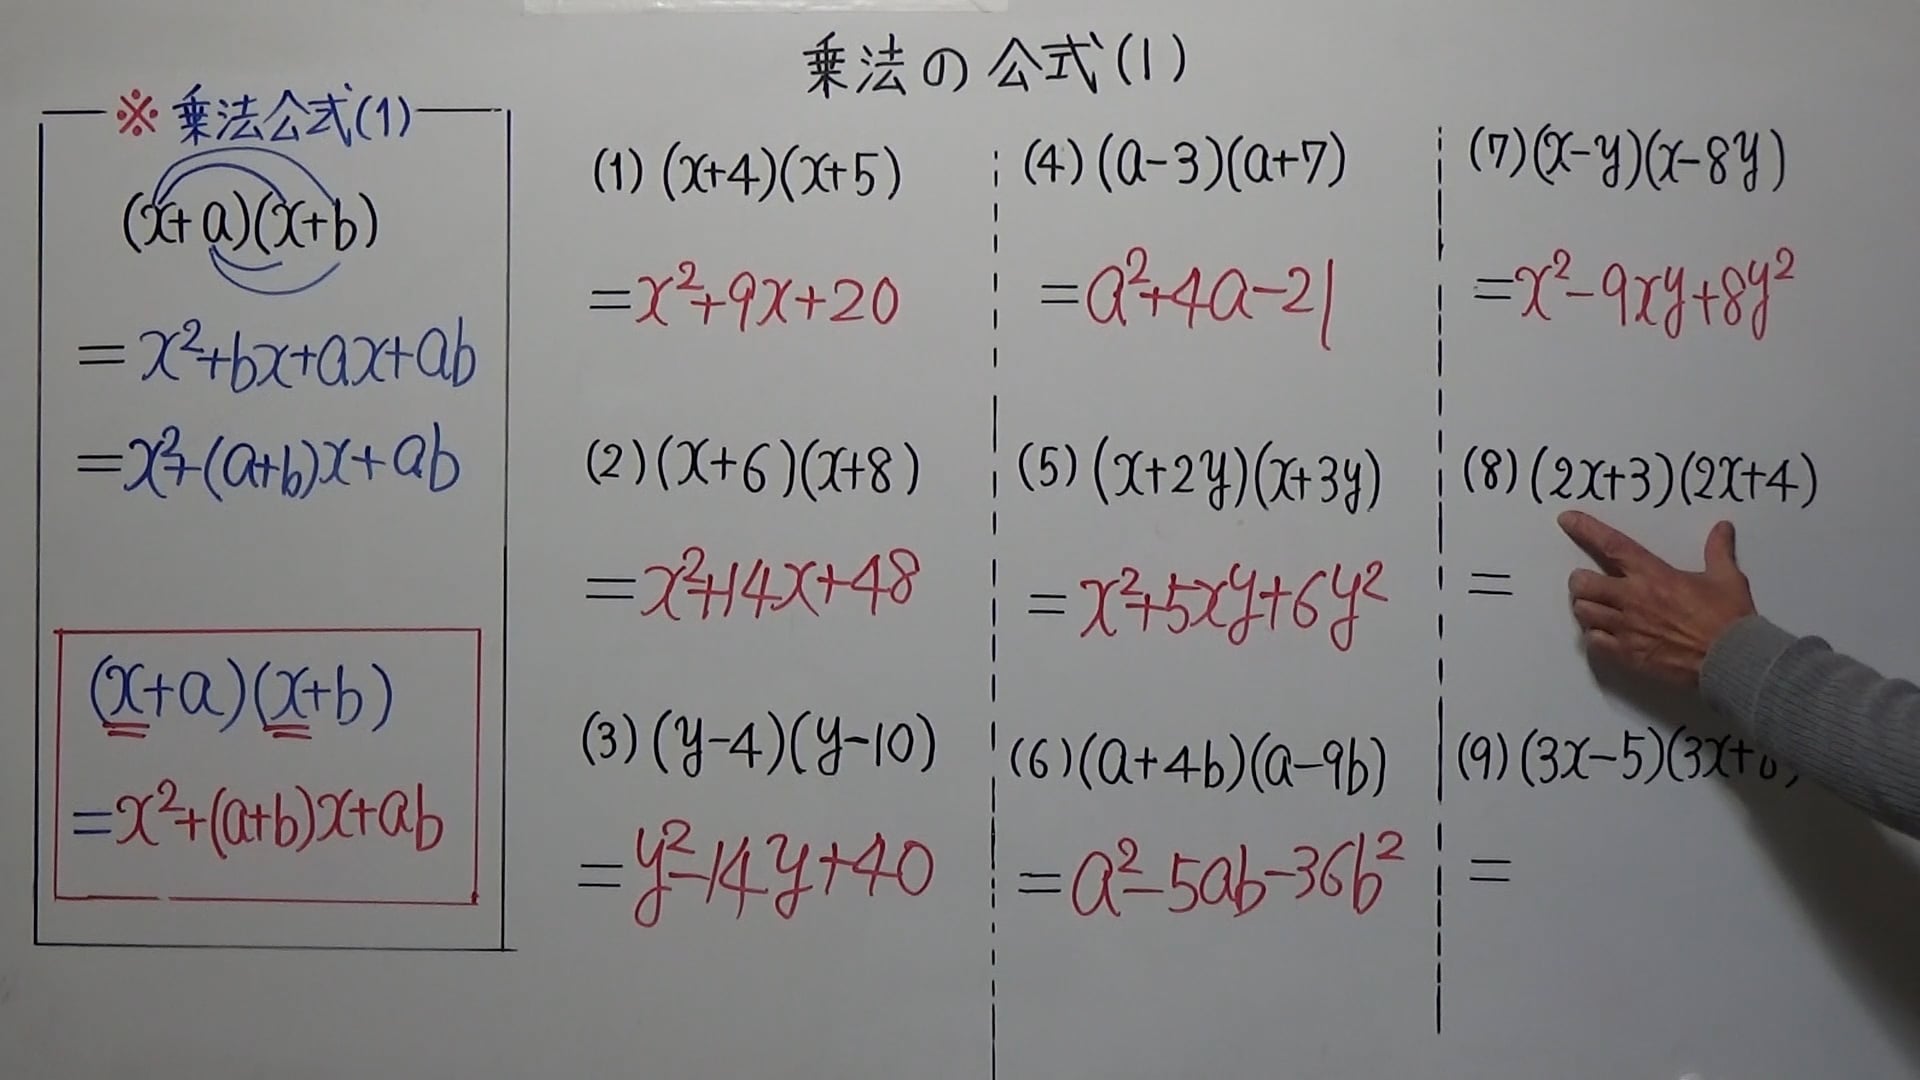 乗法の公式(1)
※乗法公式(1)
(x+a)(x+b)
=x²+bx+ax+ab
=x²+(a+b)x+ab
(x+a)(x+b)
=x²+(a+b)x+ab
(1)(x+4)(x+5)
=x²+9x+20
(2)(x+6)(x+8)
=x²+14x+48
(3)(y-4)(y-10)
=y²-14y+40
(4)(a-3)(a+7)
=a²+4a-21
(5)(x+2y)(x+3y)
=x²+5xy+6y²
(6)(a+4b)(a-9b)
=a²-5ab-36b²
(7)(x-y)(x-8y)
=x²-9xy+8y²
(8)(2x+3)(2x+4)
=
(9)(3x-5)(3x+
=